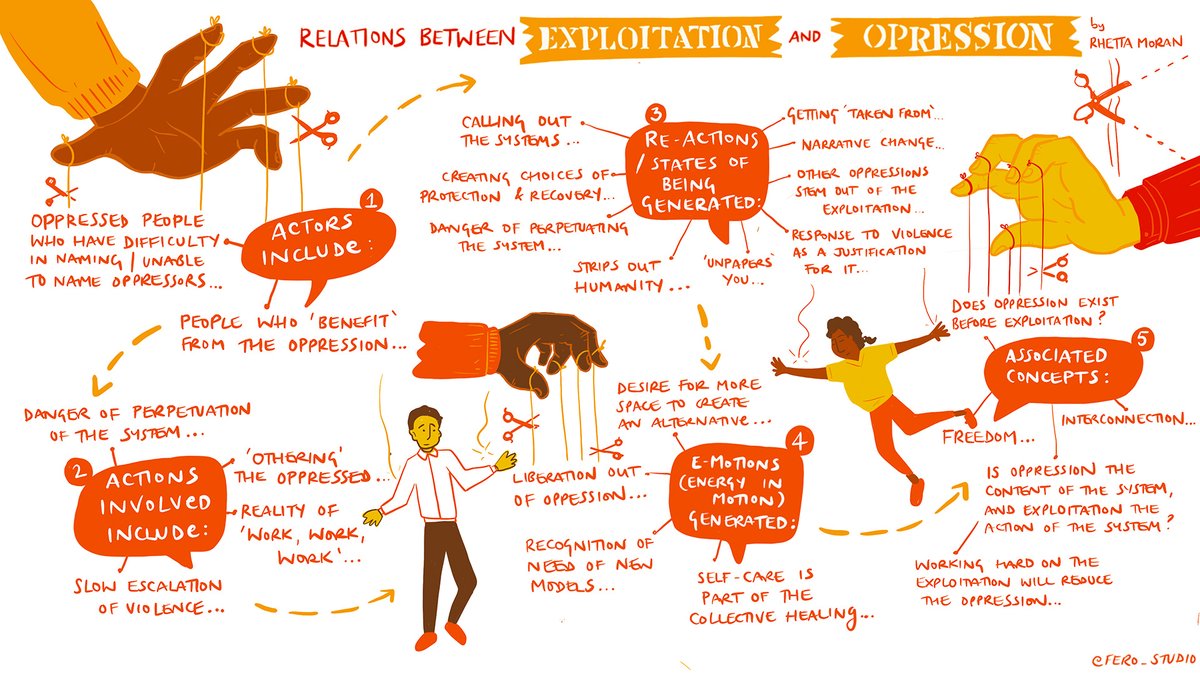 RELATIONS BETWEEN EXPLOITATION AND OPRESSION
by
RHETTA MORAN
1
ACTORS
INCLUDE:
OPPRESSED PEOPLE
WHO HAVE DIFFICULTY
IN NAMING / UNABLE
TO NAME OPPRESSORS...
PEOPLE WHO 'BENEFIT'
FROM THE OPPRESSION...
2
ACTIONS
INVOLVED
INCLUDE:
DANGER OF PERPETUATION
OF THE SYSTEM...
'OTHERING'
THE OPPRESSED...
REALITY OF
'WORK, WORK,
WORK'...
SLOW ESCALATION
OF VIOLENCE...
3
RE-ACTIONS
/ STATES OF
BEING
GENERATED:
CALLING OUT
THE SYSTEMS...
CREATING CHOICES OF
PROTECTION & RECOVERY...
DANGER OF PERPETUATING
THE SYSTEM...
STRIPS OUT
HUMANITY...
'UNPAPERS'
YOU...
GETTING 'TAKEN FROM'...
NARRATIVE CHANGE...
OTHER OPPRESSIONS
STEM OUT OF THE
EXPLOITATION...
RESPONSE TO VIOLENCE
AS A JUSTIFICATION
FOR IT...
4
E-MOTIONS
(ENERGY IN
MOTION)
GENERATED:
DESIRE FOR MORE
SPACE TO CREATE
AN ALTERNATIVE...
LIBERATION OUT
OF OPPESSION...
RECOGNITION OF
NEED OF NEW
MODELS...
SELF-CARE IS
PART OF THE
COLLECTIVE HEALING...
5
ASSOCIATED
CONCEPTS:
DOES OPPRESSION EXIST
BEFORE EXPLOITATION?
FREEDOM...
INTERCONNECTION...
IS OPPRESSION THE
CONTENT OF THE SYSTEM,
AND EXPLOITATION THE
ACTION OF THE SYSTEM?
WORKING HARD ON THE
EXPLOITATION WILL REDUCE
THE OPPRESSION...
@FERO_STUDIO